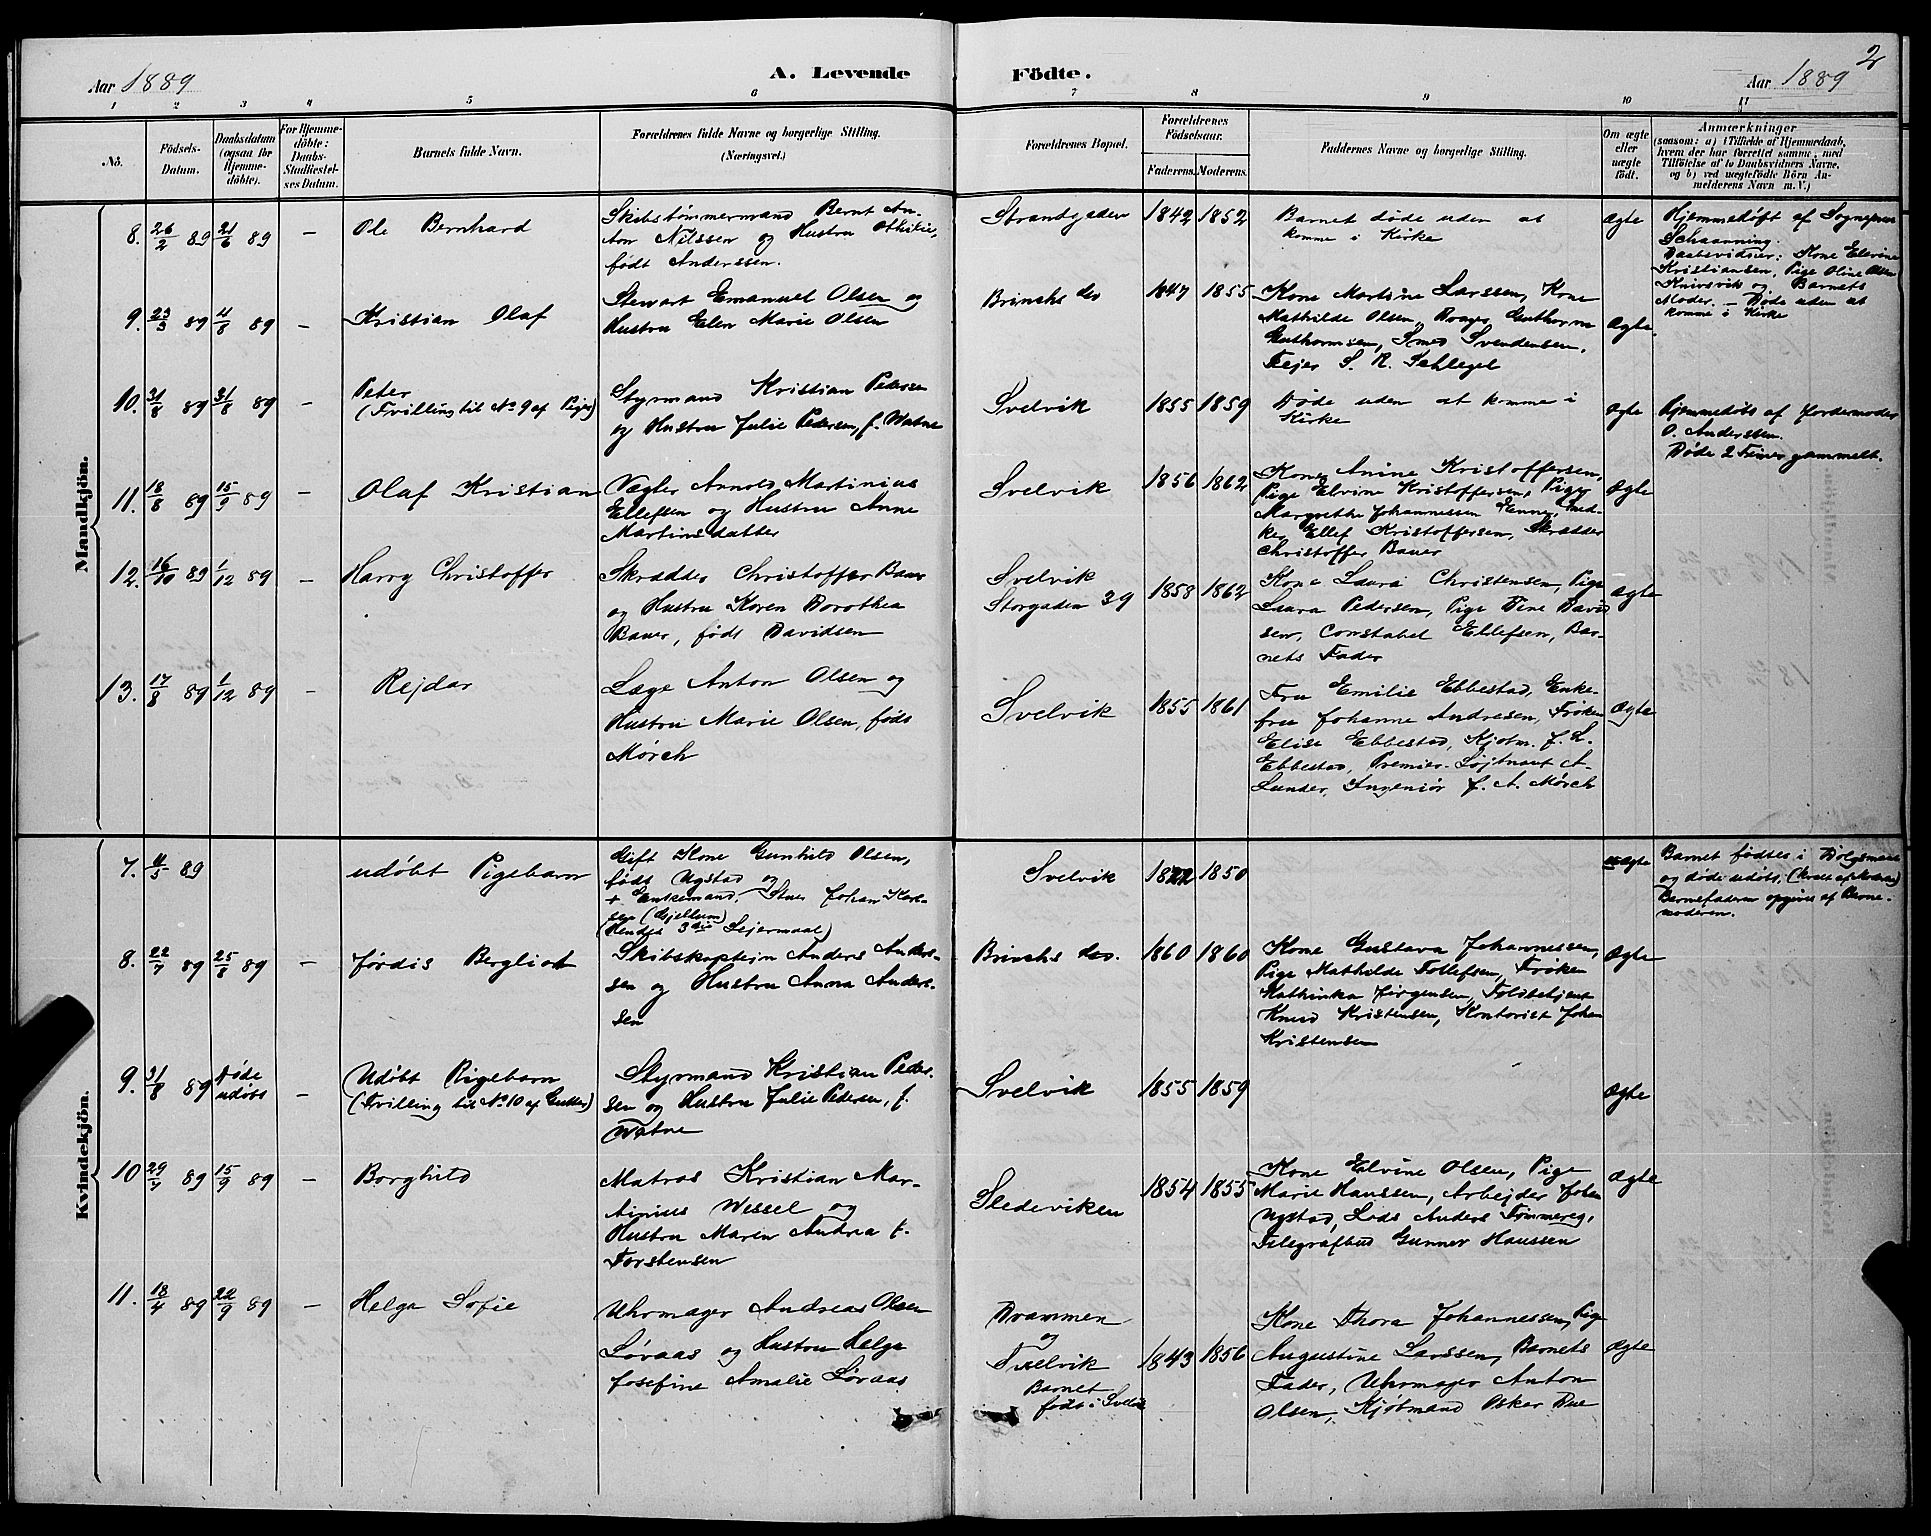 Aar 1889
A. Levende
Födte.
Aar 1889
2
1 2 3 4 5 6 7 8 9 10 11
No.
Födsels-
Datum.
Daabsdatum
(ogsaa for
Hjemme-
döbte).
For Hjemme-
döbte:
Daabs-
Stadfæstel-
ses Datum.
Barnets fulde Navn.
Forældrenes fulde Navne og borgerlige Stilling.
(Næringsvei.)
Forældrenes Bopæl.
Forældrenes
Födselsaar.
Faderens.
Moderens.
Faddernes Navne og borgerlige Stilling.
Om ægte
eller
uægte
født.
Anmærkninger
(saasom: a) i Tilfælde af Hjemmedaab,
hvem der har forrettet samme, med
Tilföielse af to Daabsvidners Navne,
og b) ved uægtefödte Börn An-
melderens Navn m. V.)
Mandkjön.
8. 26/2 89 21/6 89 –
Ole Bernhard
Skibstømmermand Bernt An-
ton Nilssen og Hustru Othilie,
født Anderssen.
Strandgaden
1842 1852
Barnet døde uden at
komme i Kirke
Ægte
Hjemmedøbt af Sogneprest
Schaanning.
Daabsvidner: Kone Elevine
Kristiansen, Pige Oline Olsen
Knivsvik og Barnets
Moder. – Døde uden at
komme i Kirke
9. 23/3 89 4/8 89 –
Kristian Olaf
Stewart Emanuel Olsen og
Hustru Elen Marie Olsen
Brinchs
1847 1855
Kone Martine Larssen, Kone
Mathilde Olsen, Guthorm
Guthormsen, Smed Svendensen,
Fejer S. R. Schlegel
Ægte
10. 31/8 89 31/8 89 –
Peter
(Tvilling til No 9 af Piger)
Styrmand Kristian Pedersen
og Hustru Julie Pedersen, f. Watne
Svelvik
1855 1859
Døde uden at komme i
Kirke
Ægte
Hjemmedøbt af Jordemoder
O. Anderssen.
Døde 2 Timer gammelt.
11. 18/8 89 15/9 89 –
Olaf Kristian
Vægter Arnold Martinius
Ellefsen og Hustru Anne
Martinsdatter
Svelvik
1856 1862
Kone Anine Kristoffersen,
Pige Elvine Kristoffersen, Pige
Margrethe Johannessen
Ellef Kristoffersen, Skrædder
Christoffer Bauer
Ægte
12. 16/10 89 1/12 89 –
Harry Christoffer
Skrædder Christoffer Bauer
og Hustru Karen Dorothea
Bauer, født Davidsen
Svelvik
Storgaden 39
1858 1862
Kone Laura Christensen, Pige
Laura Pedersen, Pige Tine David
sen, Constabel Ellefsen, Bar-
nets Fader
Ægte
13. 17/8 89 1/12 89 –
Rejdar
Læge Anton Olsen og
Hustru Marie Olsen, født
Mørch
Svelvik
1855 1861
Fru Emilie Ebbestad, Enke-
fru Johanne Andresen, Frøken
Elise Ebbestad, Kjøbm. J. L.
Ebbestad, Premier-Løjtnant A.
Lunder, Ingeniør J. A. Mørch
Ægte
Kvindekjön.
7. 4/5 89
udøbt Pigebarn
Gift Kone Gunhild Olsen,
født Ugstad og
+ Enkemand, Johan Karl-
sen (Gjellum)
(Hendes 3die Lejermaal)
Svelvik
1822 1850
uægte
Barnet fødtes i Dølgsmaal
og døde udøbt,
Barnefaderen opgives af Barne-
moderen.
8. 22/7 89 25/8 89 –
Jørdis Bergliot
Skibskaptein Anders Anders-
sen og Hustru Anna Anders-
sen
Brinchs
1860 1860
Kone Gustava Johannessen,
Pige Mathilde Tollefsen, Frøken
Kathinka Jørgensen, Toldbetjent
Knud Kristensen, Kontorist Johan
Kristensen
Ægte
9. 31/8 89 Døde
udøbt –
Udøbt Pigebarn
(Tvilling til No 10 af Gutter)
Styrmand Kristian Peder-
sen og Hustru Julie Pedersen, f.
Watne
Svelvik
1855 1859
Ægte
10 29/7 89 15/9 89 –
Borghild
Matros Kristian Mar-
tinius Wessel og
Hustru Maren Andrea f.
Torstensen
Sledeviken
1854 1855
Kone Elvine Olsen, Pige
Marie Hanssen, Arbejder Johan
Ugstad, Lods Anders Tømmereg,
Telegrafbud Gunner Hanssen
Ægte
11. 18/4 89 22/9 89 –
Helga Sofie
Uhrmager Andreas Olsen
Løvaas og Hustru Helga
Josefine Amalie Løvaas
Drammen
og
Svelvik
Barnet
født i Svelvik
1843 1856
Kone Thora Johannessen, Pige
Augustine Larssen, Barnets
Fader, Uhrmager Anton
Olsen, Kjøbmand Oskar Due
Ægte